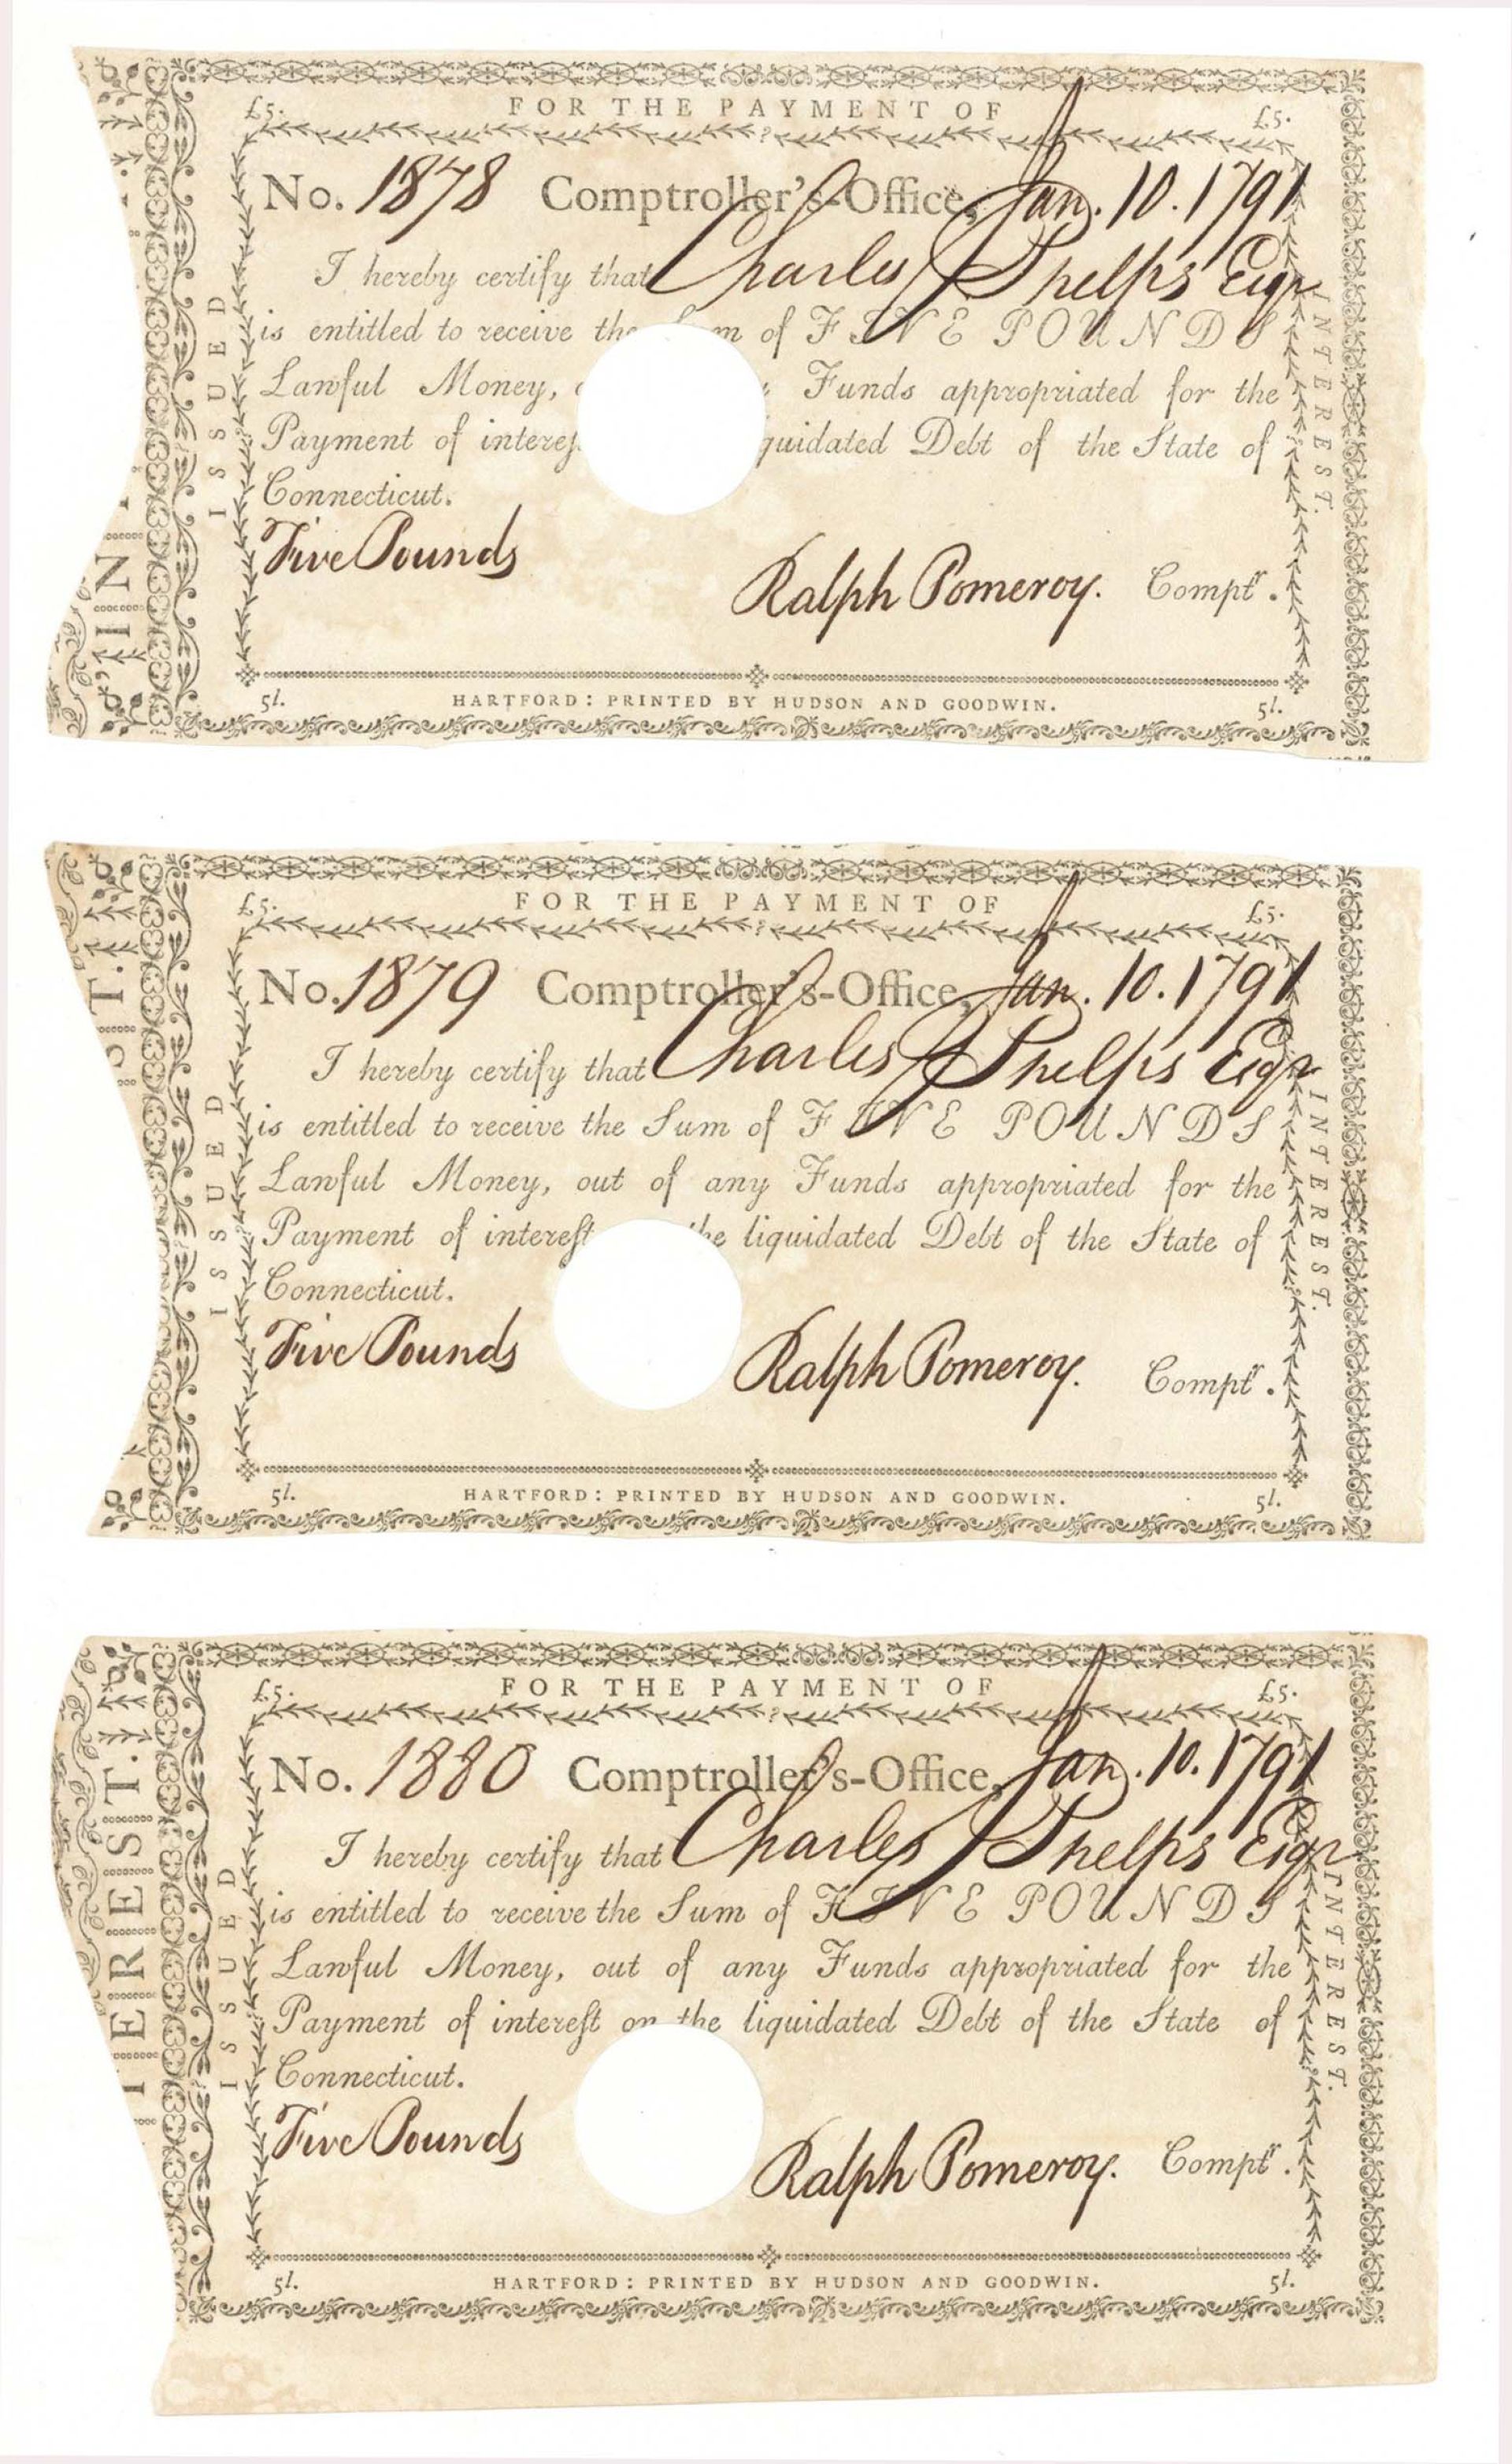 £5. FOR THE PAYMENT OF £5.
No. 1878 Comptroller's-Office, Jan. 10. 1791
I hereby certify that Charles Phelps Esqr
is entitled to receive the of FIVE POUNDS
Lawful Money, Funds appropriated for the
Payment of Debt of the State of
Connecticut.
Five Pounds
Ralph Pomeroy. Comptr.
5l. HARTFORD: PRINTED BY HUDSON AND GOODWIN. 5l.
ISSUED
INTEREST.
£5. FOR THE PAYMENT OF £5.
No. 1879 Comptroller's-Office, Jan. 10. 1791
I hereby certify that Charles Phelps Esqr
is entitled to receive the Sum of FIVE POUNDS
Lawful Money, out of any Funds appropriated for the
Payment of interest the liquidated Debt of the State of
Connecticut.
Five Pounds
Ralph Pomeroy. Comptr.
5l. HARTFORD: PRINTED BY HUDSON AND GOODWIN. 5l.
ISSUED
INTEREST.
£5. FOR THE PAYMENT OF £5.
No. 1880 Comptroller's-Office, Jan. 10. 1791
I hereby certify that Charles Phelps Esqr
is entitled to receive the Sum of FIVE POUNDS
Lawful Money, out of any Funds appropriated for the
Payment of interest on the liquidated Debt of the State of
Connecticut.
Five Pounds
Ralph Pomeroy. Comptr.
5l. HARTFORD: PRINTED BY HUDSON AND GOODWIN. 5l.
ISSUED
INTEREST.